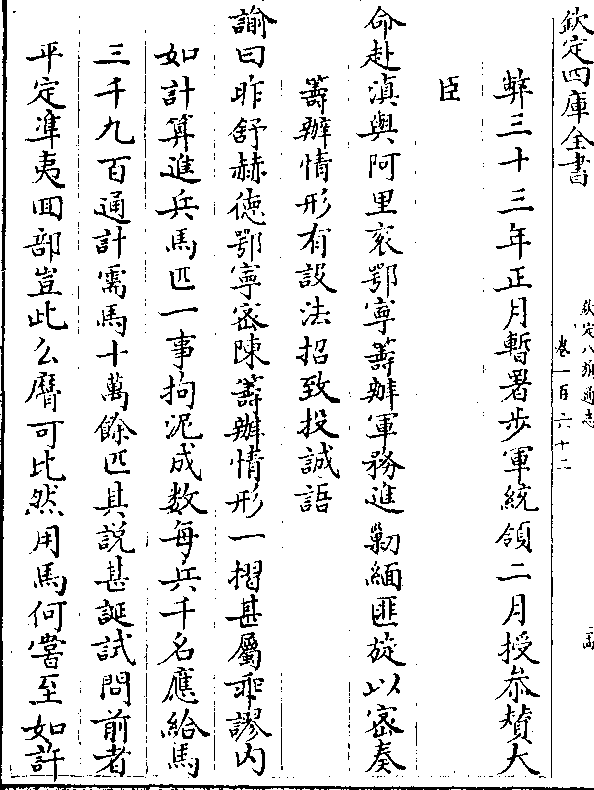 欽定四庫全書
欽定八旗通志
卷一百六十二
弊三十三年正月暫署步軍統領二月授叅贊大
臣
命赴滇與阿里衮鄂寧籌辦軍務進剿緬匪旋以宻奏
籌辦情形有設法招致投誠語
諭曰昨舒赫徳鄂寧宻陳籌辦情形一摺甚屬乖謬内
如計算進兵馬匹一事拘泥成数每兵千名應給馬
三千九百通計需馬十萬餘匹其説甚誕試問前者
平定準夷囬部豈此么䯢可比然用馬何嘗至如許